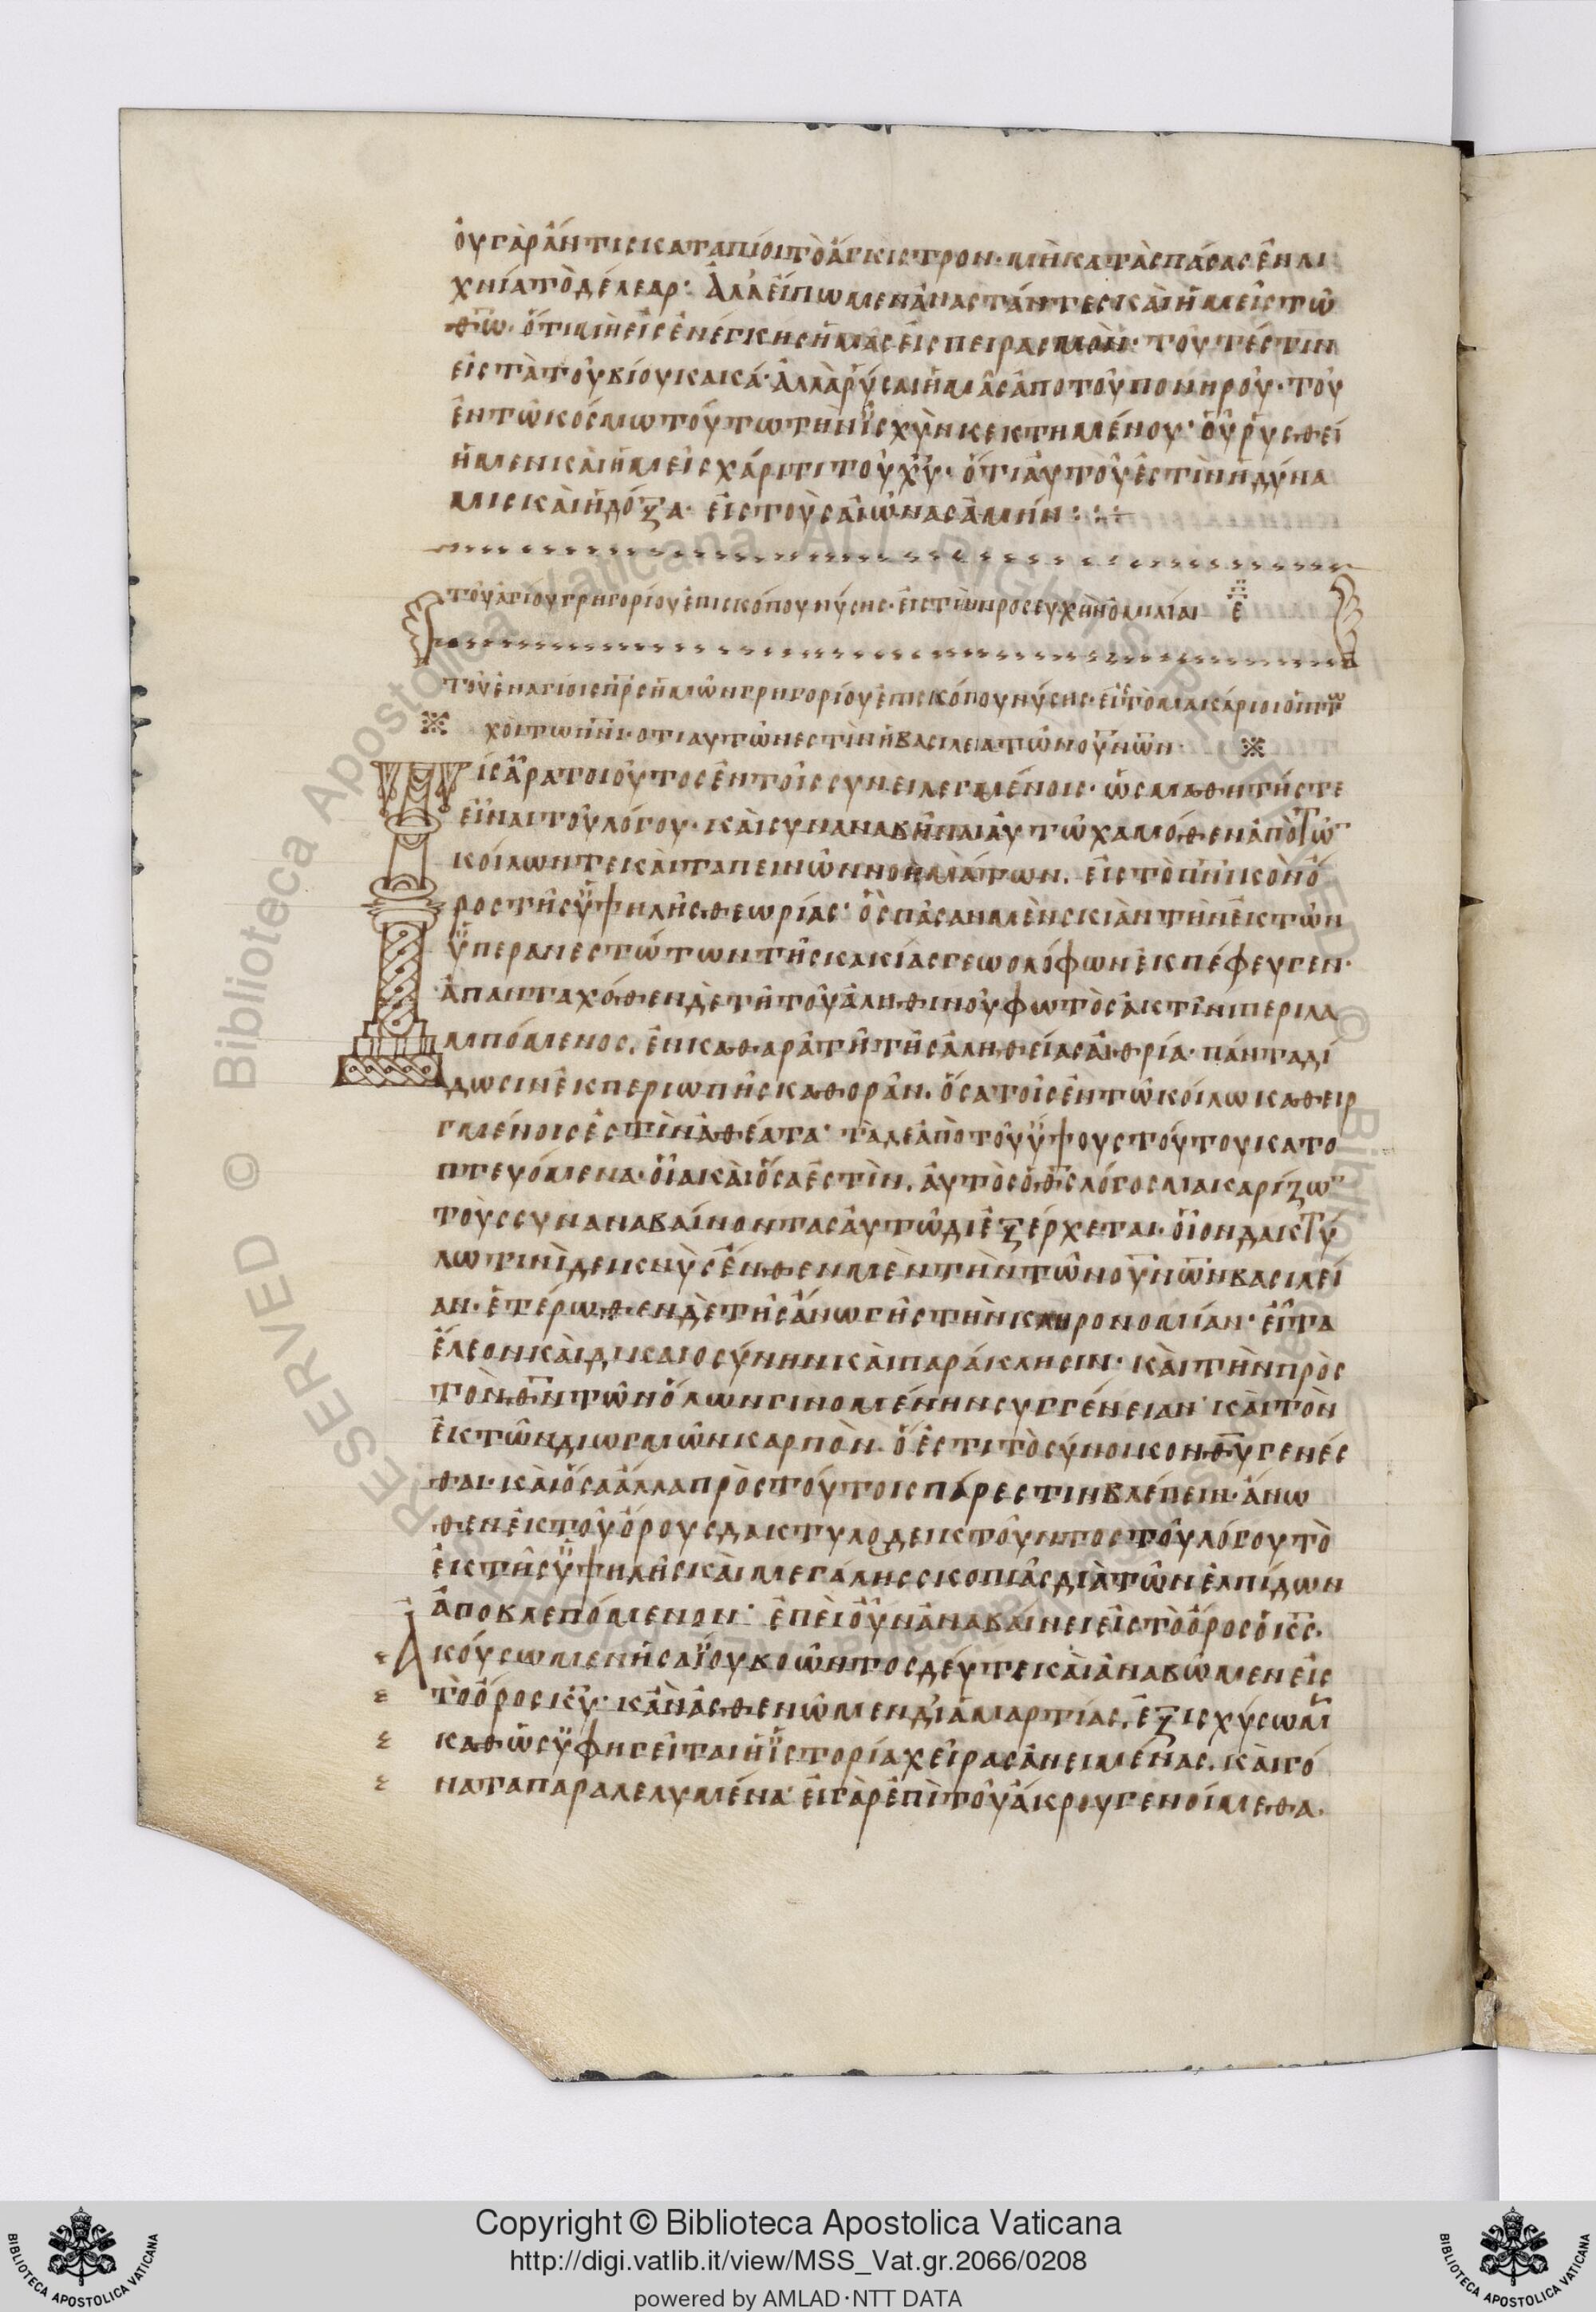 οὐ γὰρ ἄν τις καταπίοι τὸ ἄγκιστρον· μὴ κατασπάσας ἐν λι
χνία τὸ δέλεαρ· Ἀλλ' εἴπωμεν ἀναστάντες καὶ ἡμεῖς τῶ
θ̅ω̅· ὅτι μὴ εἰσενέγκης ἡμᾶς εἰς πειρασμὸν· τουτέστιν
εἰς τὰ τοῦ βίου κακά· ἀλλὰ ῥύσαι ἡμᾶς ἀπο τοῦ πονηροῦ· τοῦ
ἐν τῶ κόσμω τούτω τὴν ἰσχὺν κεκτημένου· οὗ ῥυσθεί
ημεν καὶ ἡμεῖς χάριτι τοῦ χ̅υ̅· ὅτι αὐτοῦ ἐστὶν ἡ δύνα
μις καὶ ἡ δόξα· εἰς τοὺς αἰῶνας ἀμήν :
τοῦ ἁγίου γρηγορίου ἐπισκόπου νύσης· εἰς τὴν προσευχὴν ὁμιλίαι ε
τοῦ ἐν ἁγίοις π̅ρ̅ς ἡμῶν γρηγορίου ἐπισκόπου νύσης· εἰς τὸ μακάριοι οἱ πτω
χοὶ τῶ π̅ν̅ι̅· οτι αυτῶν ἐστὶν ἡ βασιλεια τῶν ο̅υ̅ν̅ω̅ν̅
Τίς ἄρα τοιοῦτος ἐν τοῖς συνειλεγμένοις· ὡς μαθητής τε
εἶναι τοῦ λόγου· καὶ συναναβῆναι αὐτῶ χαμόθεν ἀπὸ τῶ̅
κοίλων τε καὶ ταπεινῶν νοημάτων, εἰς τὸ π̅ν̅ικὸν ὄ
ρος τῆς ὑψηλῆς θεωρίας· ὃς πᾶσαν μὲν σκιὰν τὴν ἐκ τῶν
ὑπερανεστώτων τῆς κακίας γεωλόφων ἐκπέφευγεν·
ἁπανταχόθεν δὲ τῆ τοῦ ἀληθινοῦ φωτὸς ἀκτῖνι περιλα
μπόμενος, ἐν καθαρᾶ τῆ τῆς ἀληθείας αἰθρία· πάντα δί
δωσιν ἐκ περιωπῆς καθορᾶν. ὅσα τοῖς ἐν τῶ κοίλω καθειρ
γμένοις ἐστὶν ἀθέατα· τὰ δε ἀπὸ τοῦ ὕψους τούτου κατο
πτευόμενα· οἷα καὶ ὅσα ἐστὶν, αὐτὸς ὁ θ̅ς̅ λόγος μακαρίζω̅
τοὺς συναναβαίνοντας αὐτῶ διεξέρχεται· οἷον δακτύ
λω τινὶ δεικνὺς ἔνθεν μὲν τὴν τῶν ο̅υ̅ν̅ω̅ν βασιλεί
αν· ἑτέρωθεν δὲ τῆς ἄνω γῆς τὴν κληρονομίαν· εἶτα
ἔλεον καὶ δικαιοσύνην καὶ παράκλησιν· καὶ τὴν πρὸς
τὸν θ̅ν̅ τῶν ὅλων γινομένην συγγένειαν· καὶ τὸν
ἐκ τῶν διωγμῶν καρπὸν. ὅ ἐστι τὸ σύνοικον θ̅υ̅ γενέσ
θαι· καὶ ὅσα ἄλλα πρὸς τούτοις πάρεστιν βλέπειν· ἄνω
θεν ἐκ τοῦ ὄρους δακτυλοδεικτοῦντος τοῦ λόγου τὸ
ἐκ τῆς ὑψηλῆς καὶ μεγάλης σκοπιᾶς διὰ τῶν ἐλπίδων
ἀποβλεπόμενον· ἐπεὶ οὖν ἀναβαίνει εἰς τὸ ὄρος ὁ κ̅ς̅·
Ἀκούσωμεν ἡσαΐου βοῶντος δεύτε καὶ ἀναβῶμεν εἰς
τὸ ὄρος κ̅υ̅· κἂν ἀσθενῶμεν δι' ἁμαρτίας, ἐξισχύσωμ
καθὼς ὑφηγεῖται ἡ ἱστορία χεῖρας ἀνειμένας, καὶ γό
νατα παραλελυμένα· εἰ γὰρ ἐπὶ τοῦ ἄκρου γενοίμεθα·
Copyright © Biblioteca Apostolica Vaticana
http://digi.vatlib.it/view/MSS_Vat.gr.2066/0208
powered by AMLAD·NTT DATA